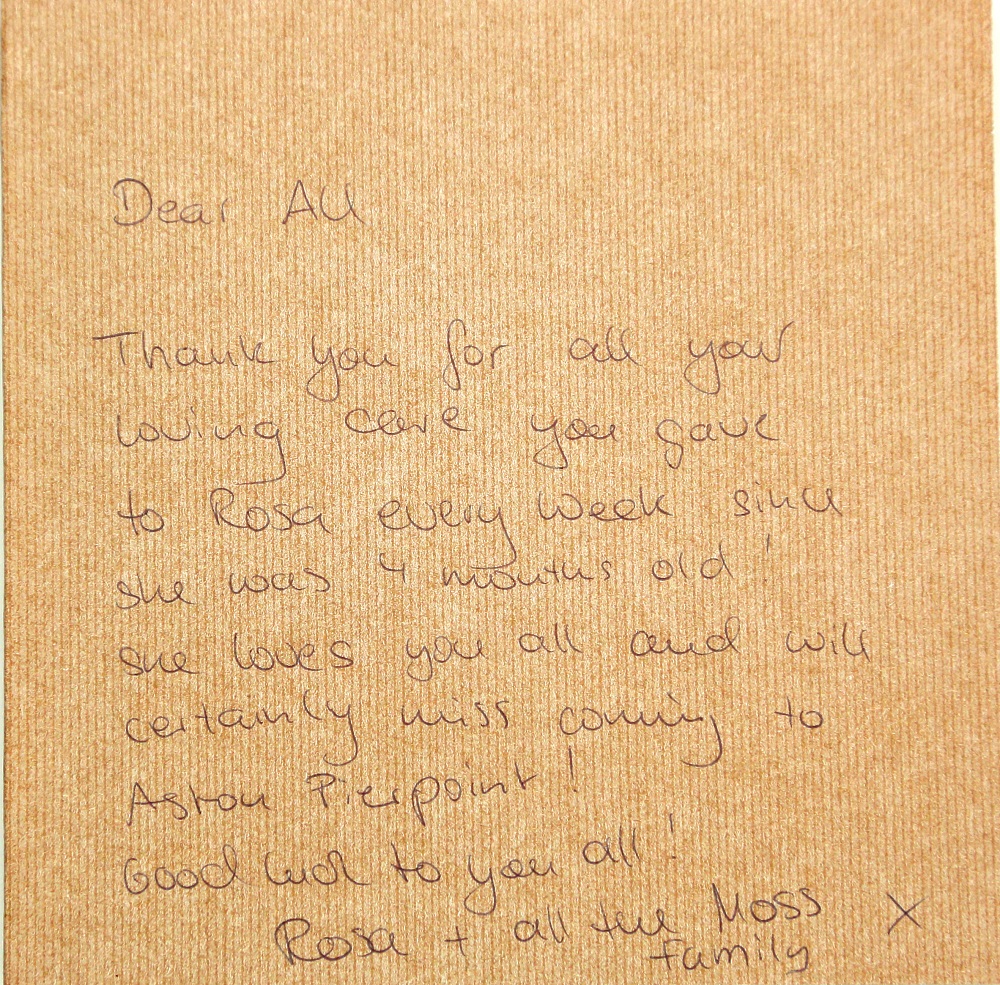 Dear All
Thank you for all your
loving care you gave
to Rosa every week since
she was 4 months old!
she loves you all and will
certainly miss coming to
Aston Pierpoint!
Good luck to you all!
Rosa + all the Moss X
Family